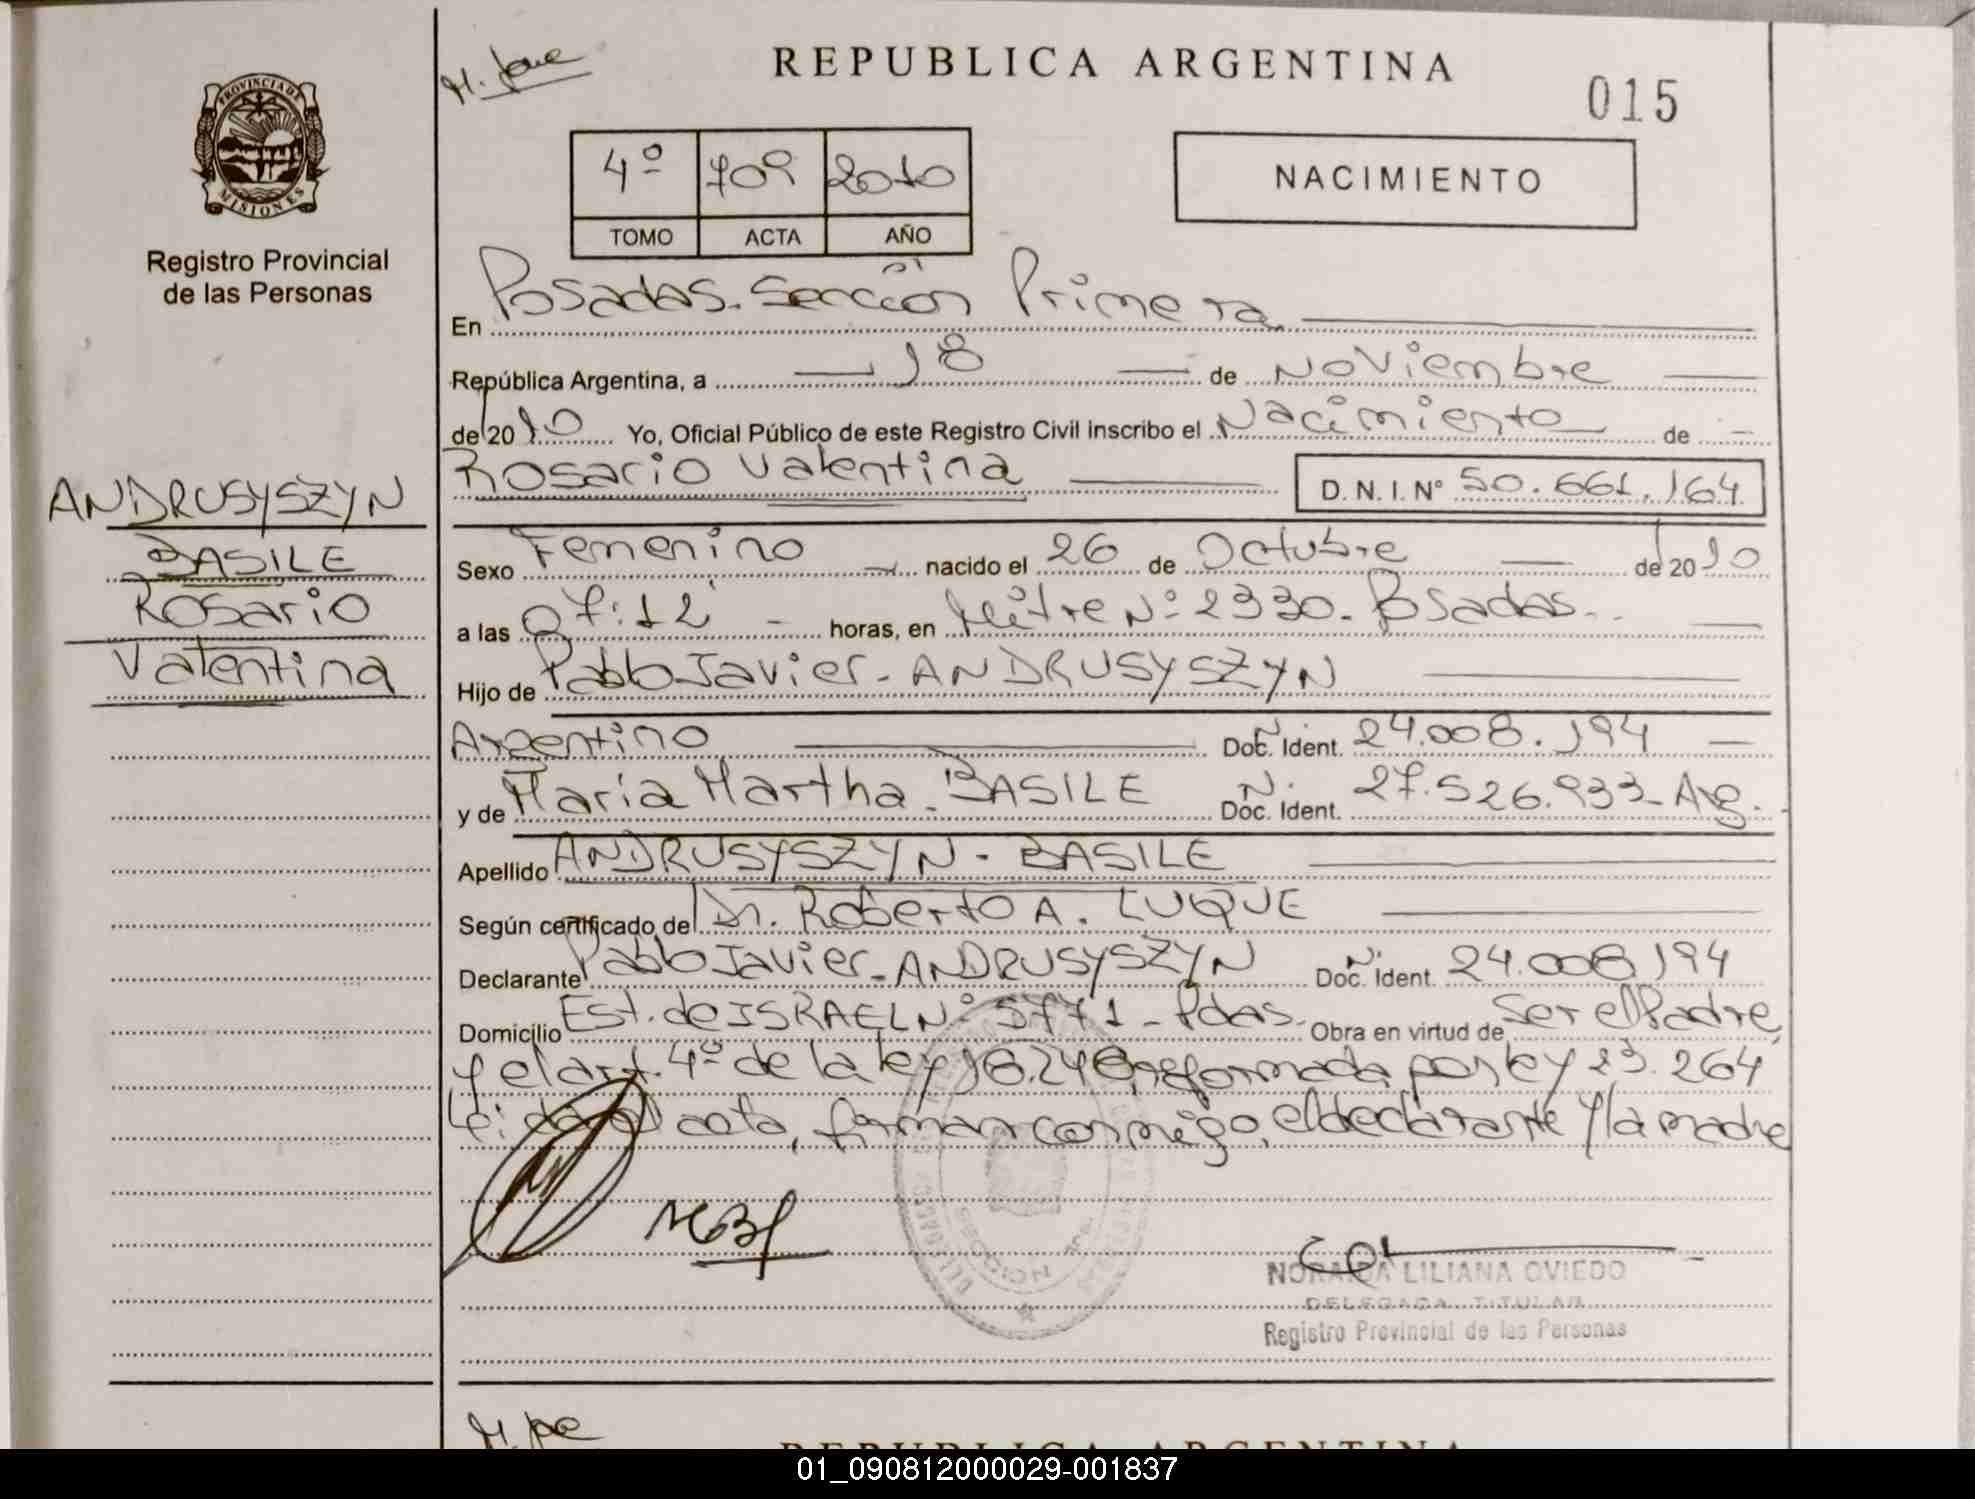 PROVINCIA DE
MISIONES
Registro Provincial
de las Personas
ANDRUSYSZYN
BASILE
Rosario
Valentina
REPUBLICA ARGENTINA
015
4º 709 2010
TOMO ACTA AÑO
NACIMIENTO
En Posadas. Sección Primera
República Argentina, a 18 de Noviembre
de 2010 Yo, Oficial Público de este Registro Civil inscribo el Nacimiento de
Rosario Valentina D.N.I. Nº 50.661.164
Sexo Femenino nacido el 26 de Octubre de 2010
a las 07:12 horas, en Mitre Nº 2330. Posadas.
Hijo de Pablo Javier - ANDRUSYSZYN
Argentino Doc. Ident. N. 24.008.194
y de María Martha - BASILE Doc. Ident. N. 27.526.933 - Arg.
Apellido ANDRUSYSZYN - BASILE
Según certificado de Dr. Roberto A. LUQUE
Declarante Pablo Javier - ANDRUSYSZYN Doc. Ident. N. 24.008.194
Domicilio Est. de ISRAEL Nº 5771 - Pdas. Obra en virtud de Ser el Padre,
y el art. 4º de la ley 18.248, reformada por ley 23.264
Leída el acta, firman conmigo, el declarante y la madre
NORAIDA LILIANA OVIEDO
DELEGADA TITULAR
Registro Provincial de las Personas
REPUBLICA ARGENTINA
01_090812000029-001837